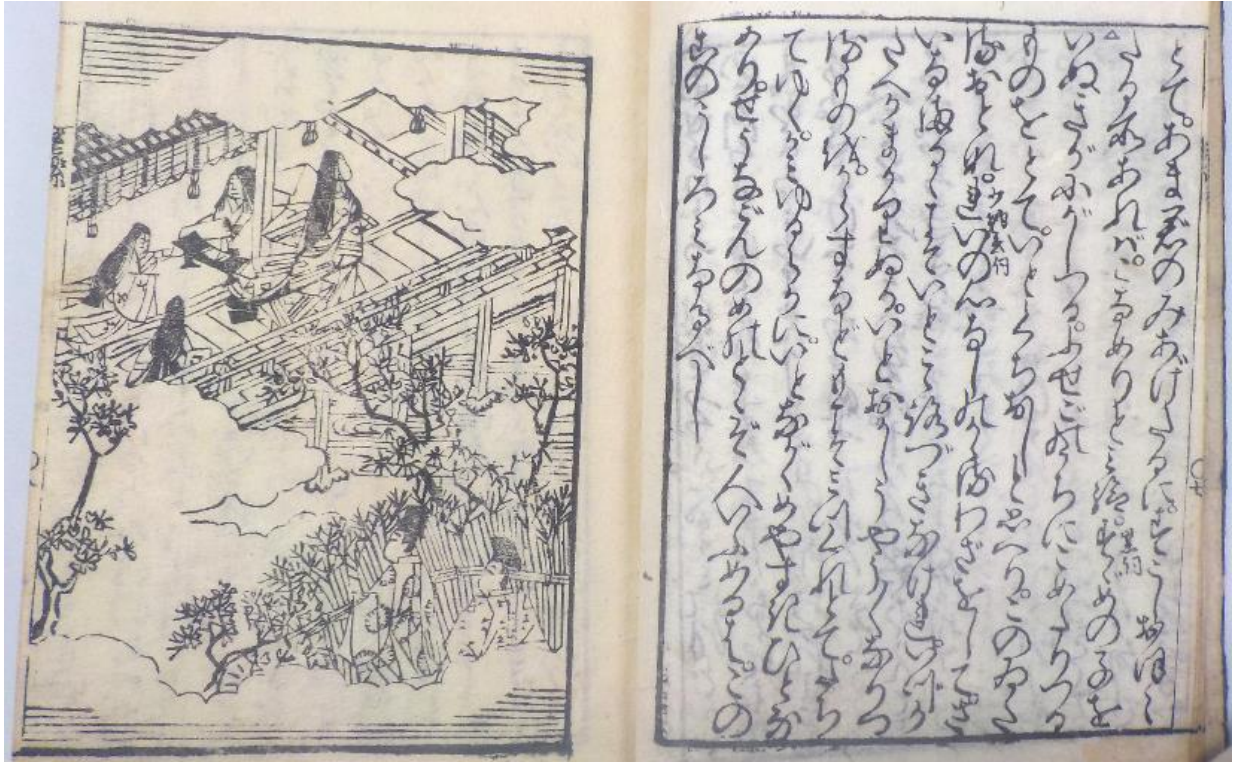 とて。あま君のみあげたるに。すこしおぼえ
たる所あれば。こなめりとみ給。すゞめの子を
いぬきがにがしつる。ふせごのうちにこめたりつる
ものをとて。いとくちおしと思へり。このゐた
るおとな。れいの心なしのかゝるわざをしてさ
いなまるゝこそいとこゝろづきなけれ。いづか
たへかまかりぬる。いとおかしうやう〳〵なりつ
るものを。からすなどもこそみつくれとて。たち
てゆく。かみゆるゝかに。いとながくめやすきひとな
めり。せうなごんのめのとゝぞ人いふめるは。この
このうしろみなるべし